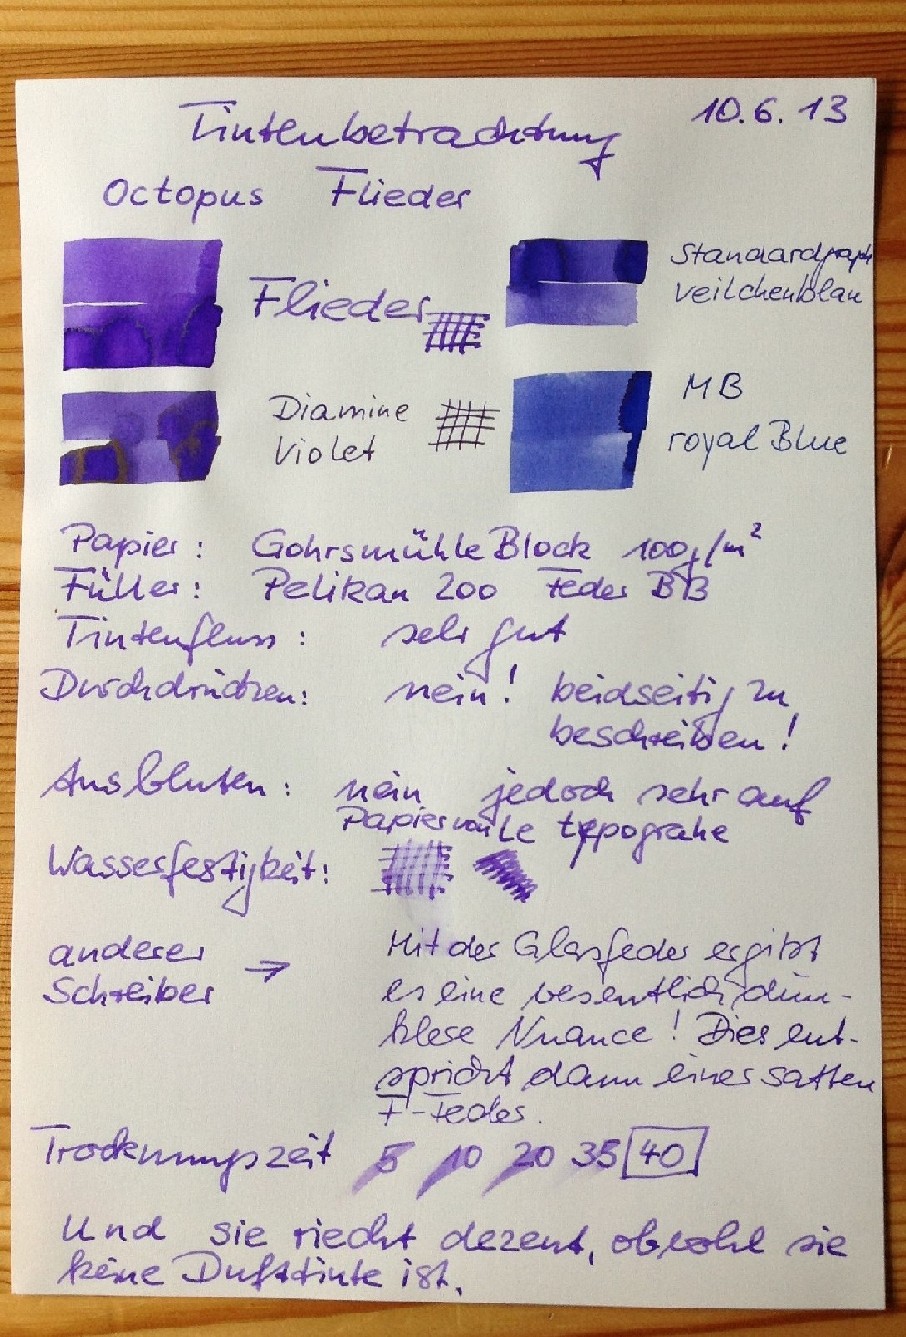 10.6.13
Tintenbetrachtung
Octopus Flieder
Flieder
Standardgraph
Veilchenblau
Diamine
Violet
MB
royal Blue
Papier: Gohrsmühle Block 100g/m²
Füller: Pelikan 200 Feder BB
Tintenfluss: sehr gut
Durchdrücken: nein! beidseitig zu
beschreiben!
Ausbluten: nein jedoch sehr auf
Papier typograhe
Wasserfestigkeit:
anderer
Schreiber →
Mit der Glasfeder ergibt
es eine wesentlich dun-
klere Nuance! Dies ent-
spricht dann einer satten
F-Feder.
Trocknungszeit 5 10 20 35 40
Und sie riecht dezent, obwohl sie
keine Dufttinte ist.